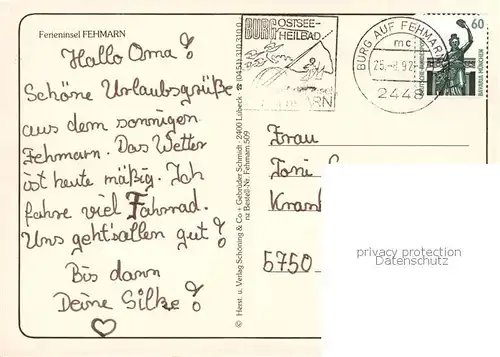 Ferieninsel FEHMARN
Hallo Oma!
Schöne Urlaubsgrüße
aus dem sonnigen
Fehmarn. Das Wetter
ist heute mäßig. Ich
fahre viel Fahrrad.
Uns geht's allen gut!
Bis dann
Deine Silke!
© Herst. u. Verlag Schöning & Co + Gebrüder Schmidt · 2400 Lübeck · ☎ (0451) 310 310
nz Bestell-Nr. Fehmarn 509
BURG OSTSEE-
HEILBAD
BURG AUF FEHMARN
mc
25.-8.92
2448
60
DEUTSCHE
BAVARIA MÜNCHEN
Frau
Toni
5750
privacy protection
Datenschutz